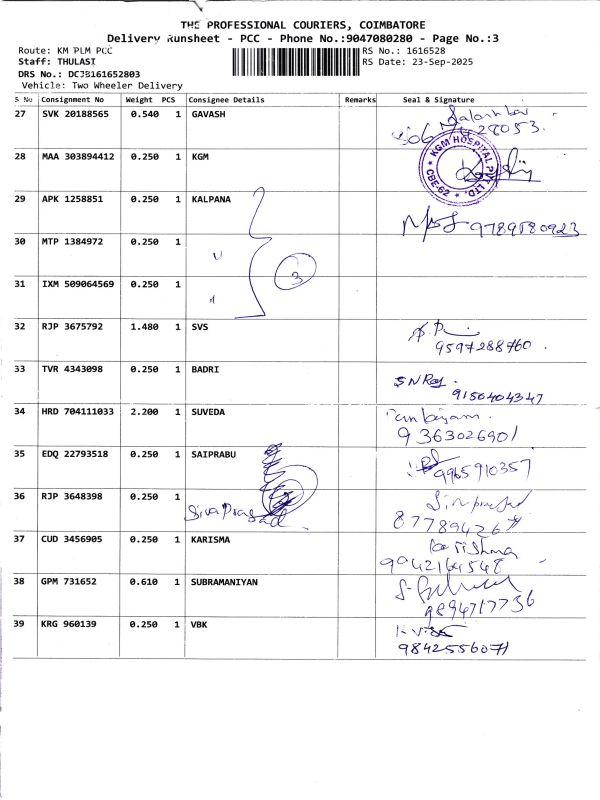 THE PROFESSIONAL COURIERS, COIMBATORE
Delivery Runsheet - PCC - Phone No.:9047080280 - Page No.:3
Route: KM PLM PCC
RS No.: 1616528
Staff: THULASI
RS Date: 23-Sep-2025
DRS No.: DCJB161652803
Vehicle: Two Wheeler Delivery
S No Consignment No Weight PCS Consignee Details Remarks Seal & Signature
27 SVK 20188565 0.540 1 GAVASH
28 MAA 303894412 0.250 1 KGM
KGM HOSPITAL PVT LTD. CBE-62
29 APK 1258851 0.250 1 KALPANA
9789580923
30 MTP 1384972 0.250 1 "
3
31 IXM 509064569 0.250 1 "
32 RJP 3675792 1.480 1 SVS
9597288760.
33 TVR 4343098 0.250 1 BADRI
SNRaj.
9150404347
34 HRD 704111033 2.200 1 SUVEDA
9363026901
35 EDQ 22793518 0.250 1 SAIPRABU
9965910357
36 RJP 3648398 0.250 1 Siva Prasad
Sivaprasad
37 CUD 3456905 0.250 1 KARISMA
Karishma
9942164548
38 GPM 731652 0.610 1 SUBRAMANIYAN
9894717736
39 KRG 960139 0.250 1 VBK
9842556071